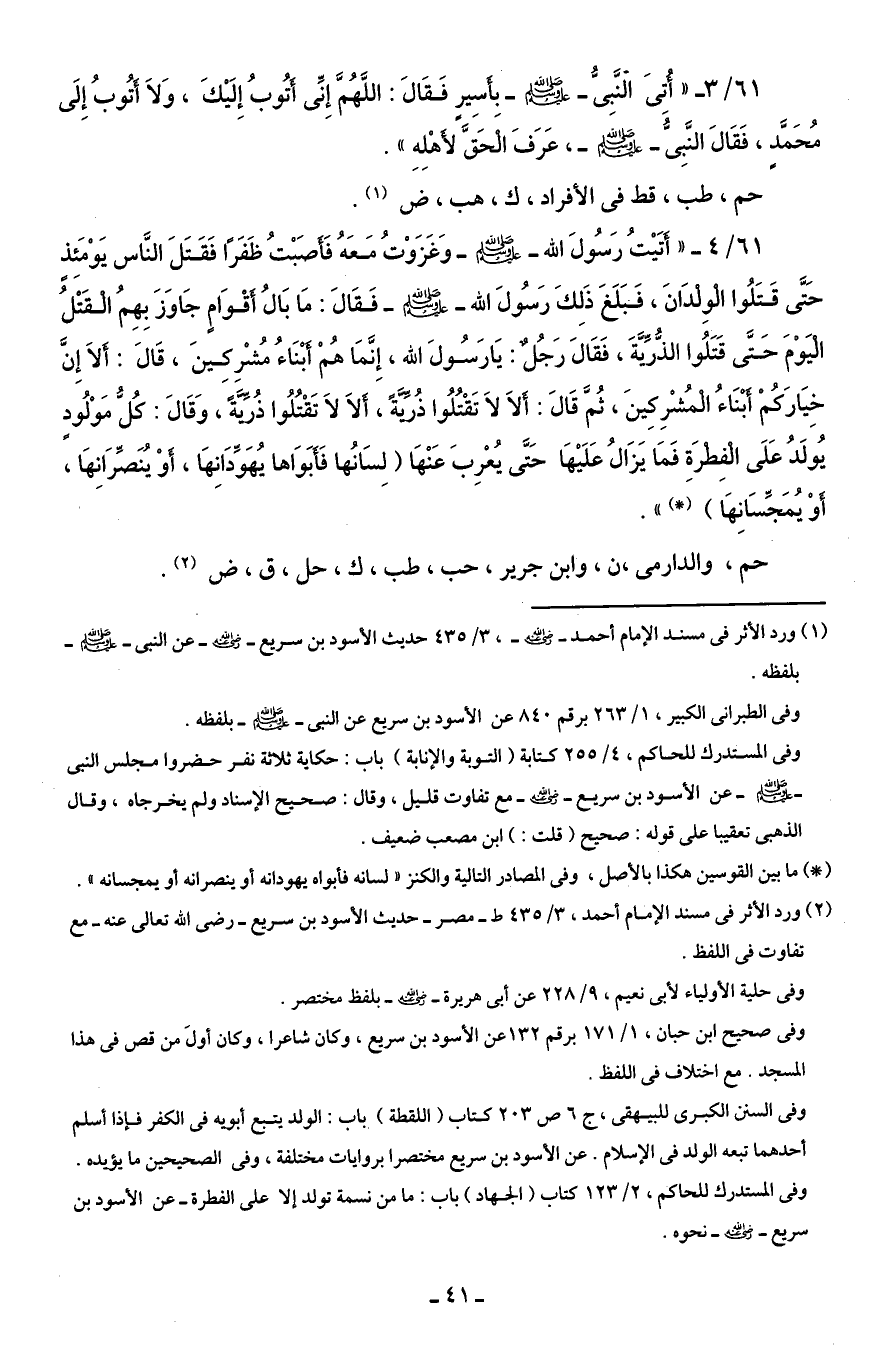 ٣/٦١- « أُتِىَ النَّبِىُّ - ﷺ - بِأَسِيرٍ فَقَالَ : اللَّهُمَّ إِنِّى أَتُوبُ إِلَيْكَ ، وَلاَ أَتُوبُ إِلَى
مُحَمَّدٍ ، فَقَالَ النَّبِىُّ - ﷺ - ، عَرَفَ الْحَقَّ لأَهْلِهِ » .
حم ، طب ، قط فى الأفراد ، ك ، هب ، ض (١) .
٤/٦١ - « أَتَيْتُ رَسُولَ الله - ﷺ - وَغَزَوْتُ مَعَهُ فَأَصَبْتُ ظَفَرًا فَقَتَلَ النَّاس يَوْمَئِذٍ
حَتَّى قَتَلُوا الْوِلْدَانَ ، فَبَلَغَ ذَلِكَ رَسُولَ الله - ﷺ - فَقَالَ : مَا بَالُ أَقْوَامٍ جَاوَزَ بِهِمُ الْقَتْلُ
الْيَوْمَ حَتَّى قَتَلُوا الذُّرِّيَّةَ ، فَقَالَ رَجُلٌ : يَارَسُولَ الله ، إِنَّمَا هُمْ أَبْنَاءُ مُشْرِكِينَ ، قَالَ : أَلاَ إِنَّ
خِيَارَكُمْ أَبْنَاءُ الْمُشْرِكِينَ ، ثُمَّ قَالَ : أَلاَ لاَ تَقْتُلُوا ذُرِّيَّةً ، أَلاَ لاَ تَقْتُلُوا ذُرِّيَّةً ، وَقَالَ : كُلُّ مَوْلُودٍ
يُولَدُ عَلَى الْفِطْرَةِ فَمَا يَزَالُ عَلَيْهَا حَتَّى يُعْرِبَ عَنْهَا ( لِسَانُها فَأَبَوَاها يُهَوِّدَانِهَا ، أَوْ يُنَصِّرَانِهَا ،
أَوْ يُمَجِّسَانِهَا ) (*) » .
حم ، والدارمى ،ن ، وابن جرير ، حب ، طب ، ك ، حل ، ق ، ض (٢) .
(١) ورد الأثر فى مسند الإمام أحمد - رضي الله عنه - ، ٣/ ٤٣٥ حديث الأسود بن سريع - رضي الله عنه - عن النبى - ﷺ -
بلفظه .
وفى الطبرانى الكبير ، ١/ ٢٦٣ برقم ٨٤٠ عن الأسود بن سريع عن النبى - ﷺ - بلفظه .
وفى المستدرك للحاكم ، ٤/ ٢٥٥ كتابة ( التوبة والإنابة ) باب : حكاية ثلاثة نفر حضروا مجلس النبى
- ﷺ - عن الأسود بن سريع - رضي الله عنه - مع تفاوت قليل ، وقال : صحيح الإسناد ولم يخرجاه ، وقال
الذهبى تعقيبا على قوله : صحيح ( قلت : ) ابن مصعب ضعيف .
(*) ما بين القوسين هكذا بالأصل ، وفى المصادر التالية والكنز « لسانه فأبواه يهودانه أو ينصرانه أو يمجسانه » .
(٢) ورد الأثر فى مسند الإمام أحمد ، ٣/ ٤٣٥ ط - مصر - حديث الأسود بن سريع - رضى الله تعالى عنه - مع
تفاوت فى اللفظ .
وفى حلية الأولياء لأبى نعيم ، ٩/ ٢٢٨ عن أبى هريرة - رضي الله عنه - بلفظ مختصر .
وفى صحيح ابن حبان ، ١/ ١٧١ برقم ١٣٢عن الأسود بن سريع ، وكان شاعرا ، وكان أولَ من قص فى هذا
المسجد . مع اختلاف فى اللفظ .
وفى السنن الكبرى للبيهقى ، ج ٦ ص ٢٠٣ كتاب ( اللقطة ) باب : الولد يتبع أبويه فى الكفر فإذا أسلم
أحدهما تبعه الولد فى الإسلام . عن الأسود بن سريع مختصرا بروايات مختلفة ، وفى الصحيحين ما يؤيده .
وفى المستدرك للحاكم ، ٢/ ١٢٣ كتاب ( الجهاد ) باب : ما من نسمة تولد إلا على الفطرة - عن الأسود بن
سريع - رضي الله عنه - نحوه .
- ٤١ -